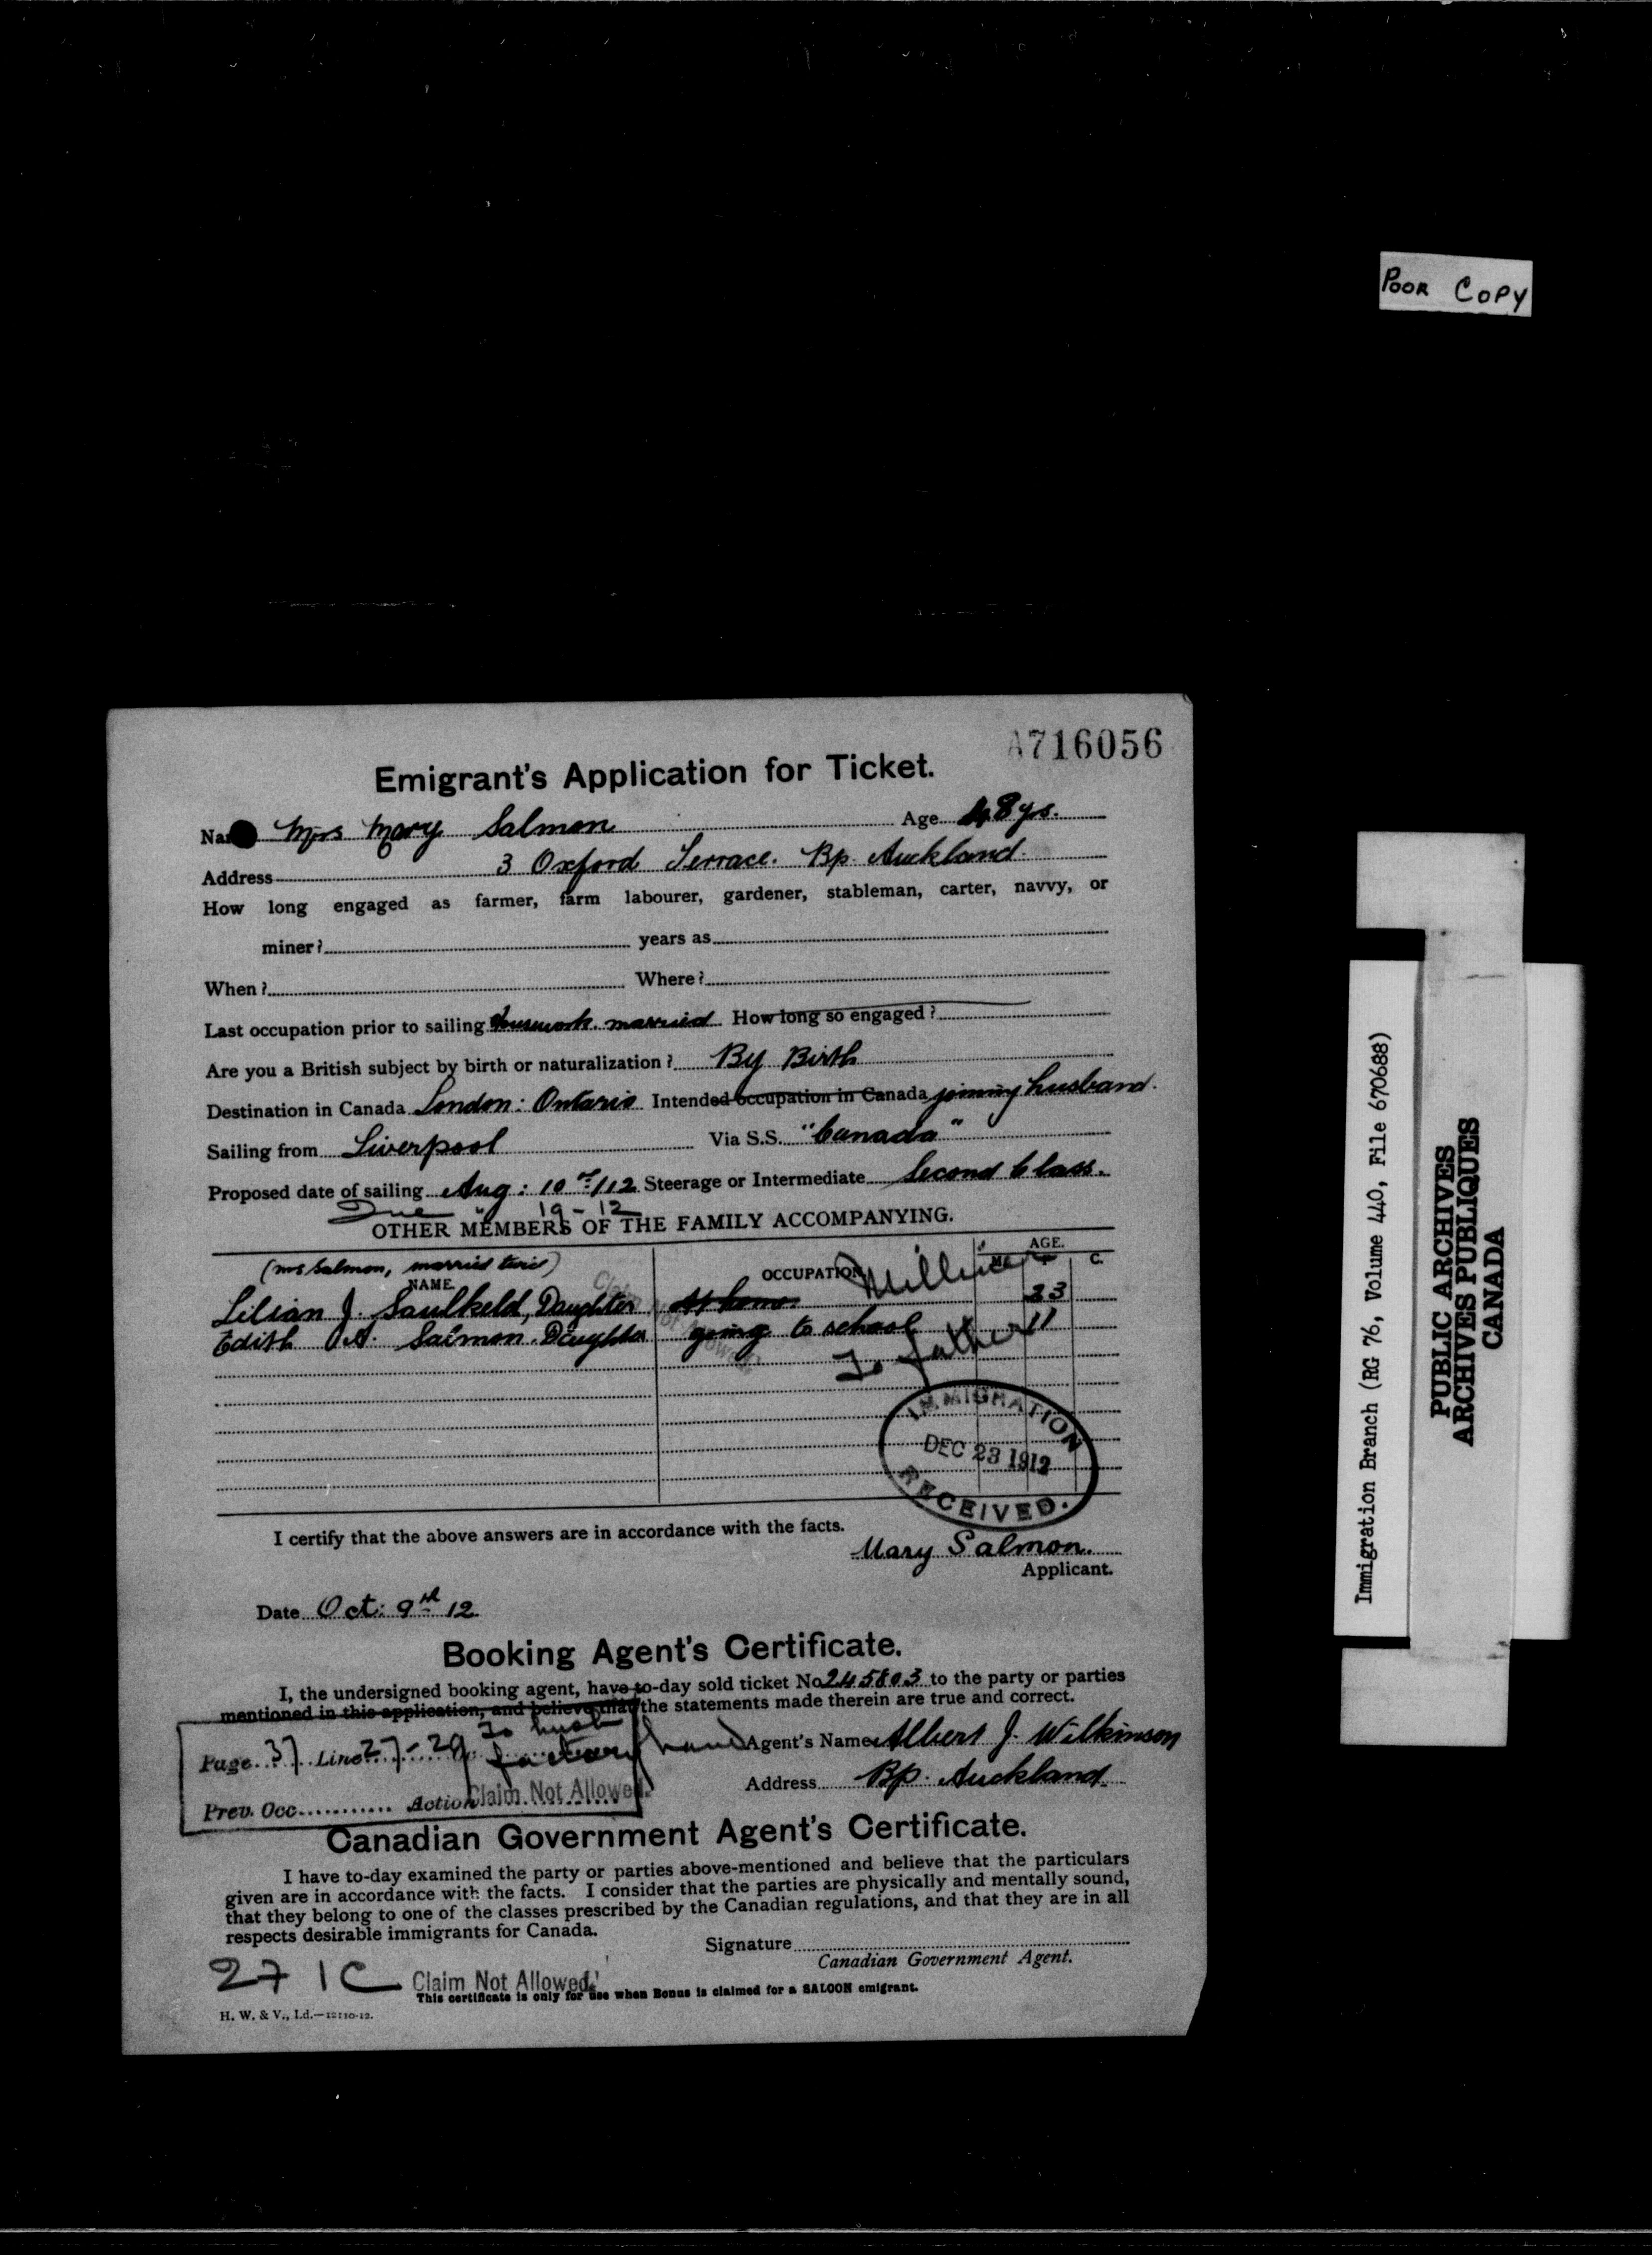 POOR COPY
A716056
Emigrant's Application for Ticket.
Name Mrs Mary Salmon Age 48 yrs.
Address 3 Oxford Terrace. Bp. Auckland.
How long engaged as farmer, farm labourer, gardener, stableman, carter, navvy, or
miner? years as
When? Where?
Last occupation prior to sailing Housework. married How long so engaged?
Are you a British subject by birth or naturalization? By Birth
Destination in Canada London: Ontario Intended occupation in Canada joining husband.
Sailing from Liverpool Via S.S. "Canada"
Proposed date of sailing Aug: 10th/12 Steerage or Intermediate Second Class.
Due " 19-12
OTHER MEMBERS OF THE FAMILY ACCOMPANYING.
(Mrs Salmon, married twice)
NAME OCCUPATION AGE.
M. F. C.
Lilian J. Saulkeld, Daughter At home. Milliner 23
Edith A. Salmon. Daughter going to school 11
To father
IMMIGRATION
DEC 23 1912
RECEIVED.
I certify that the above answers are in accordance with the facts.
Mary Salmon.
Applicant.
Date Oct: 9th 12
Booking Agent's Certificate.
I, the undersigned booking agent, have to-day sold ticket No 245803 to the party or parties
mentioned in this application, and believe that the statements made therein are true and correct.
To husb
Page 37 Line 27-29 factory hand
Agent's Name Albert J. Wilkinson
Prev. Occ. Action Claim Not Allowed.
Address Bp. Auckland.
Canadian Government Agent's Certificate.
I have to-day examined the party or parties above-mentioned and believe that the particulars
given are in accordance with the facts. I consider that the parties are physically and mentally sound,
that they belong to one of the classes prescribed by the Canadian regulations, and that they are in all
respects desirable immigrants for Canada.
Signature
Canadian Government Agent.
27 1C Claim Not Allowed.
This certificate is only for use when Bonus is claimed for a SALOON emigrant.
H. W. & V., Ld.—12110-12.
Immigration Branch (RG 76, Volume 440, File 670688)
PUBLIC ARCHIVES
ARCHIVES PUBLIQUES
CANADA